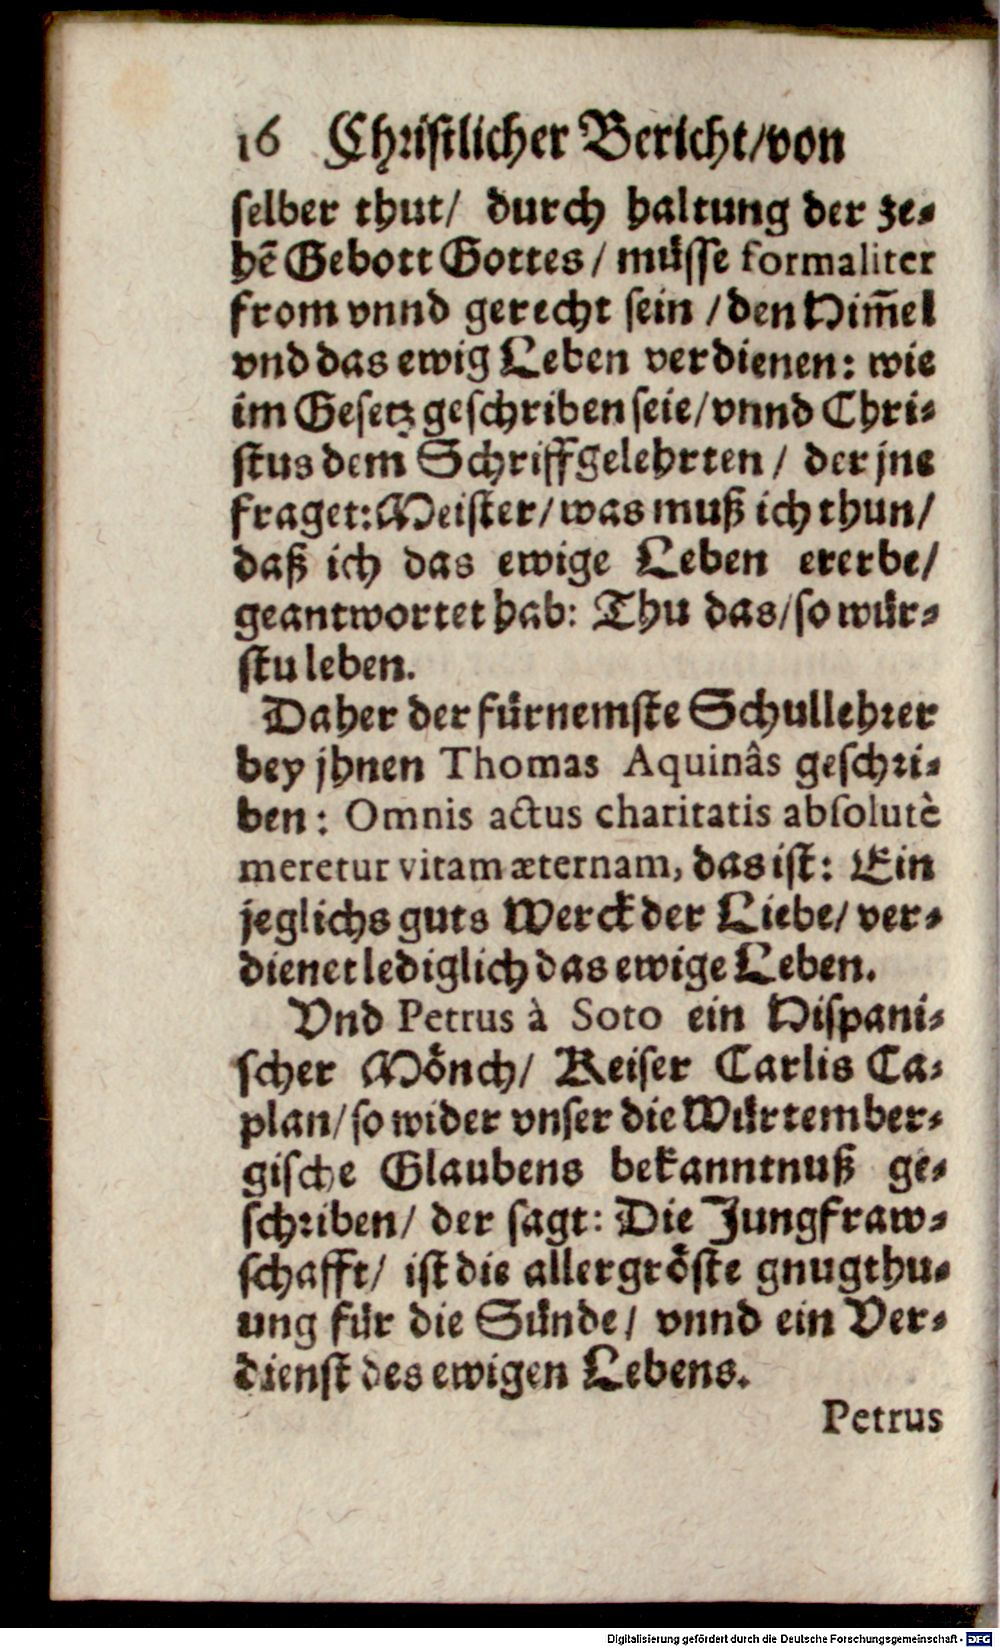 16 Christlicher Bericht/von
selber thut/ durch haltung der ze⸗
hẽ Gebott Gottes/ müsse formaliter
from vnnd gerecht sein/den Him̃el
vnd das ewig Leben verdienen: wie
im Gesetz geschriben seie/vnnd Chri⸗
stus dem Schriffgelehrten/ der jne
fraget: Meister/was muß ich thun/
daß ich das ewige Leben ererbe/
geantwortet hab: Thu das/so wür⸗
stu leben.
Daher der fürnemste Schullehrer
bey jhnen Thomas Aquinâs geschri⸗
ben: Omnis actus charitatis absolutè
meretur vitam æternam, das ist: Ein
jeglichs guts Werck der Liebe/ ver⸗
dienet lediglich das ewige Leben.
Vnd Petrus à Soto ein Hispani⸗
scher Mönch/ Keiser Carlis Ca⸗
plan/so wider vnser die Würtember⸗
gische Glaubens bekanntnuß ge⸗
schriben/ der sagt: Die Jungfraw⸗
schafft/ ist die allergröste gnugthu⸗
ung für die Sünde/ vnnd ein Ver⸗
dienst des ewigen Lebens.
Petrus
Digitalisierung gefördert durch die Deutsche Forschungsgemeinschaft - DFG